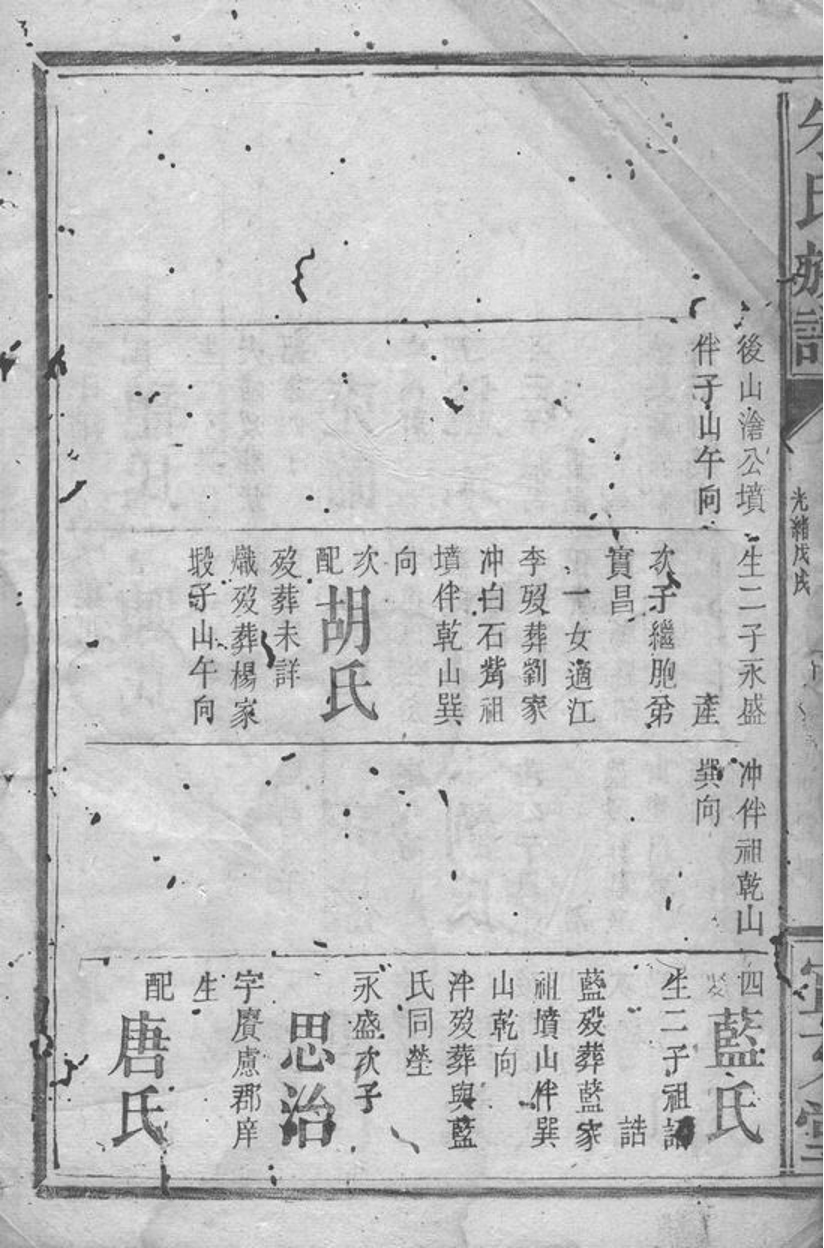 氏族譜
光緒戊戌
後山滄公墳
伴子山午向
生二子永盛
產
次子繼胞弟
實昌
一女適江
李歿葬劉家
冲白石觜祖
墳伴乾山巽
向
次
配胡氏
歿葬未詳
熾歿葬楊家
塅子山午向
冲伴祖乾山
巽向
四
藍氏
生二子祖
誥
藍歿葬藍家
祖墳山伴巽
山乾向
泮歿葬與藍
氏同塋
永盛次子
思治
字賡慮郡庠
生
配唐氏